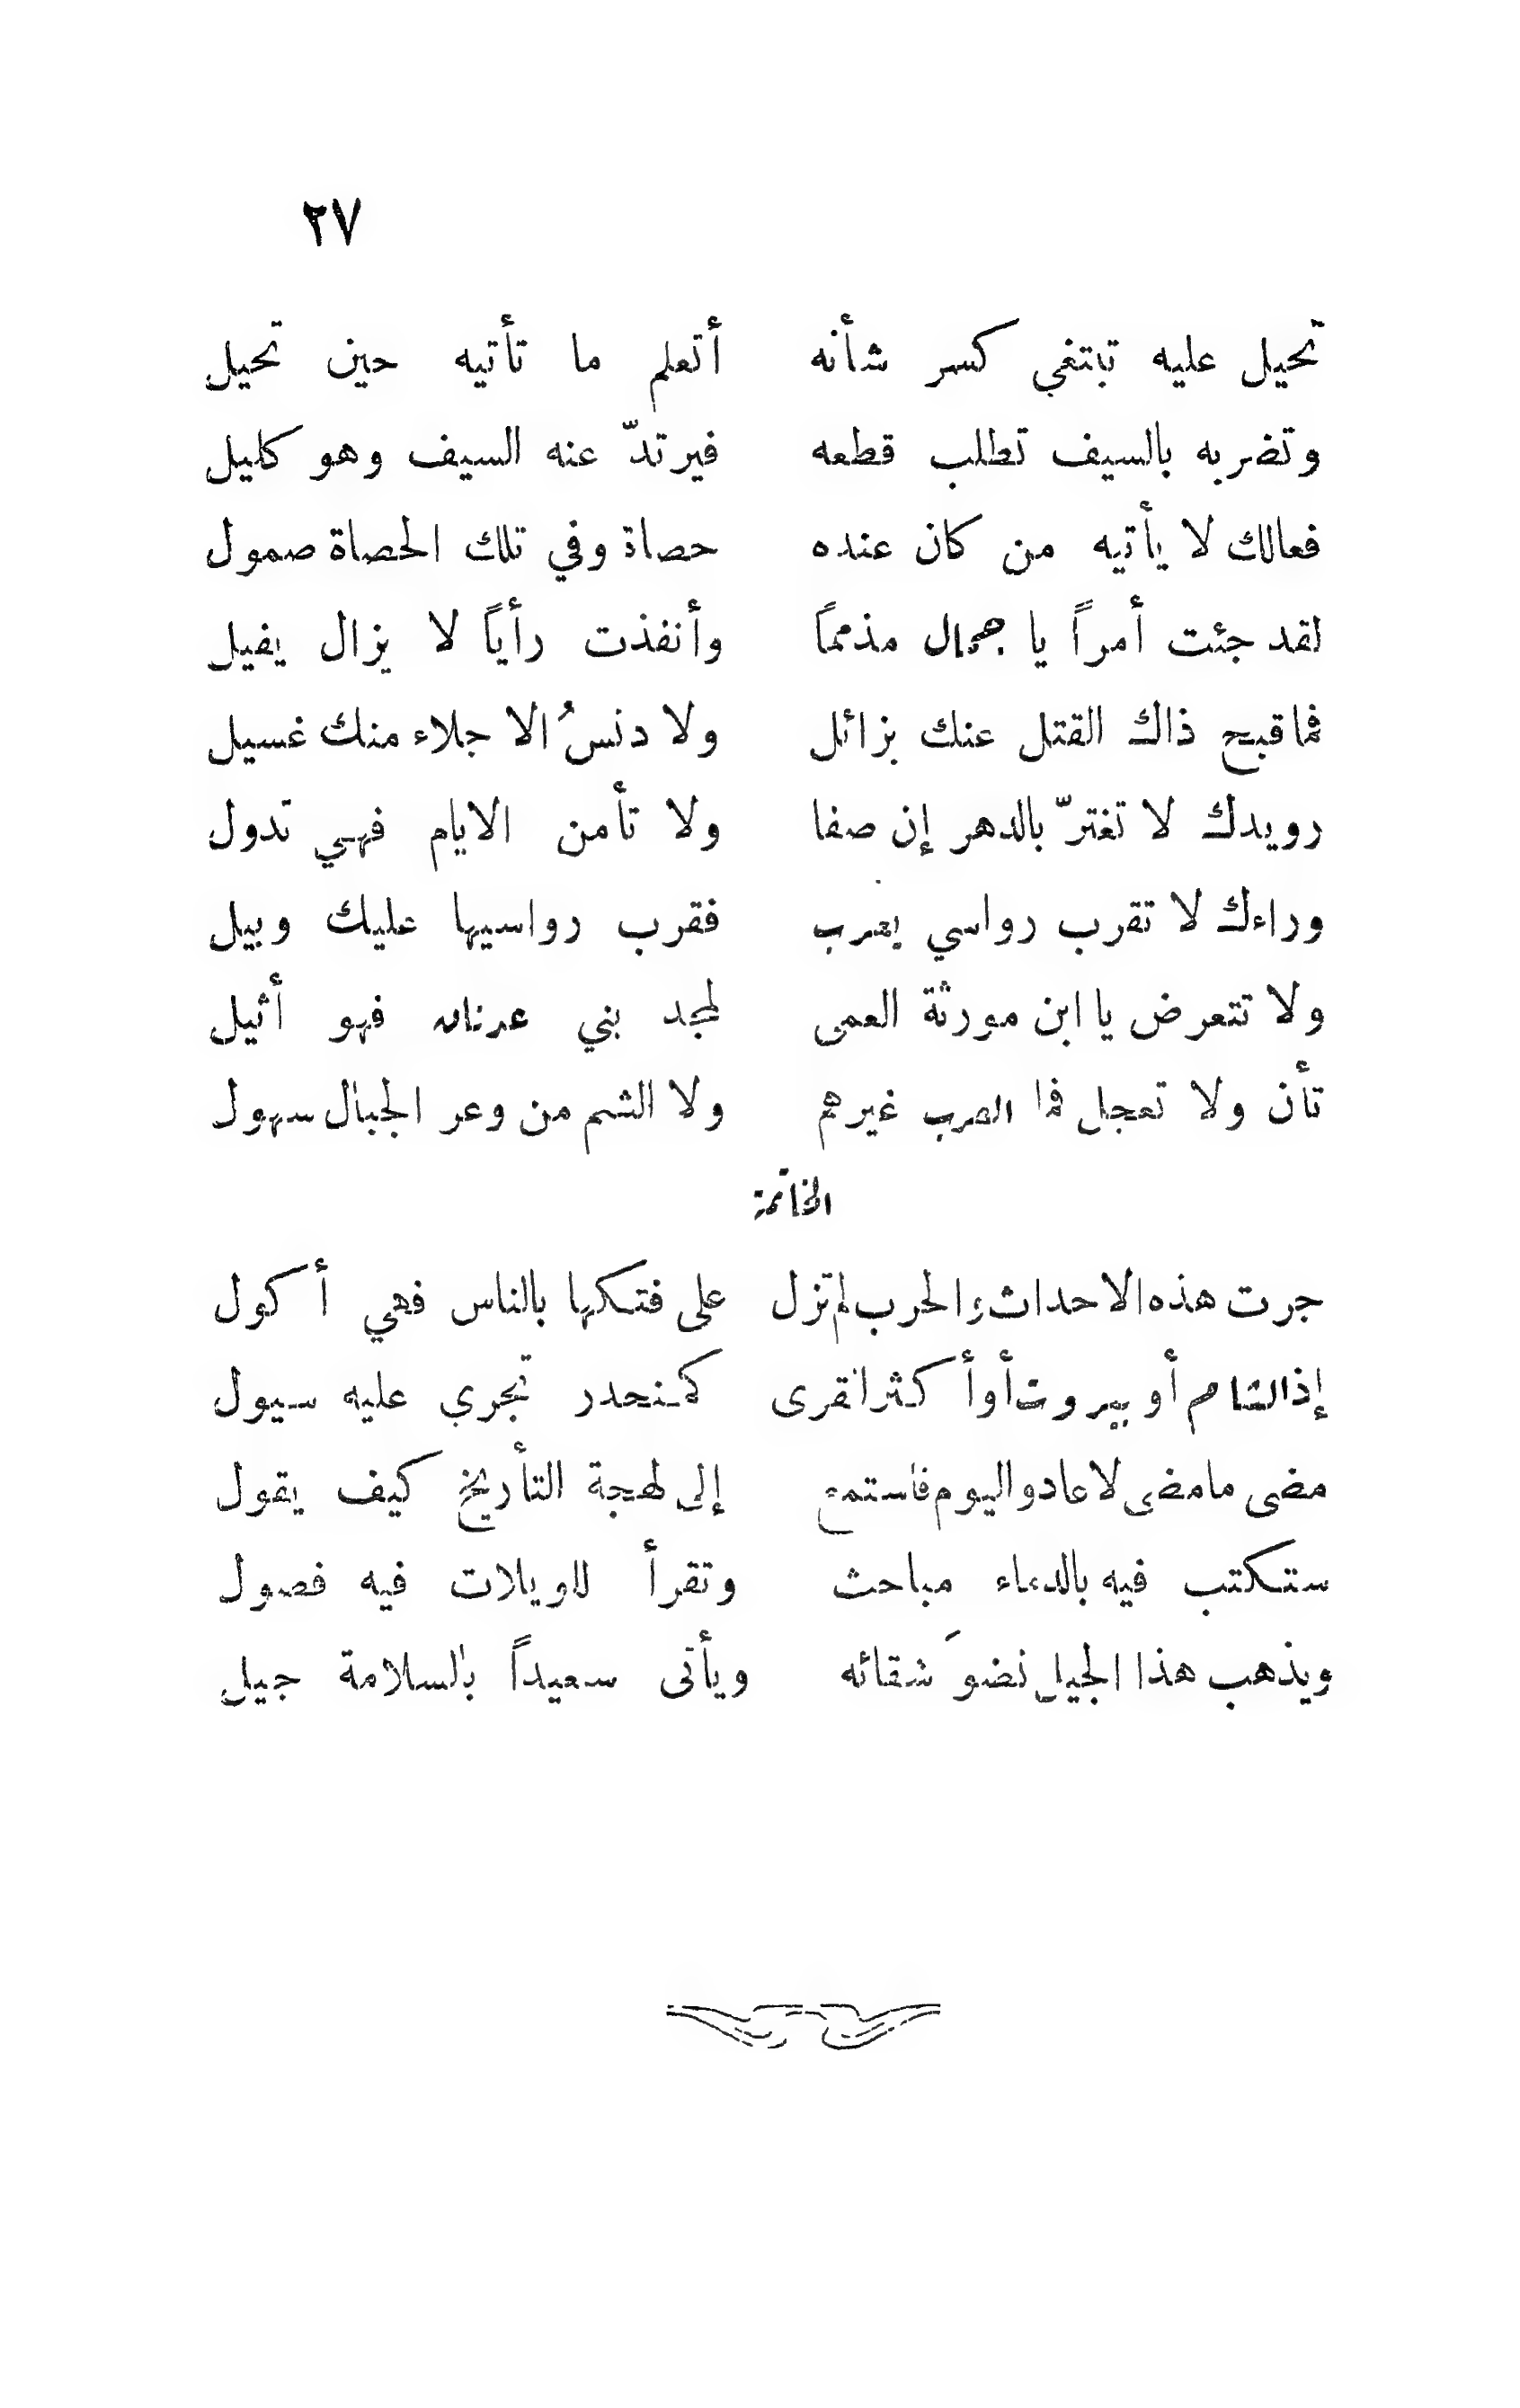 ٢٧
تحيل عليه تبتغي كسر شأنه أتعلم ما تأتيه حين تحيل
وتضربه بالسيف تطلب قطعه فيرتدّ عنه السيف وهو كليل
فعالك لا يأتيه من كان عنده حصاة وفي تلك الحصاة صمول
لقد جئت أمراً يا جمال مذمماً وأنفذت رأياً لا يزال يفيل
فما قبح ذاك القتل عنك بزائل ولا دنسُ الا جلاء منك غسيل
رويدك لا تغترّ بالدهر إن صفا ولا تأمن الايام فهي تدول
وراءك لا تقرب رواسي يعرب فقرب رواسيها عليك وبيل
ولا تتعرض يا ابن مورثة العمى لمجد بني عدنان فهو أثيل
تأن ولا تعجل فما العرب غيرهم ولا الشم من وعر الجبال سهول
الخاتمة
جرت هذه الاحداث والحرب لم تزل على فتكها بالناس فهي أكول
إذ الشام أو بيروت أو أكثر القرى كمنحدر تجري عليه سيول
مضى ما مضى لا عاد واليوم فاستمع إلى لهجة التأريخ كيف يقول
ستكتب فيه بالدماء مباحث وتقرأ للويلات فيه فصول
ويذهب هذا الجيل نضوَ شقائه ويأتى سعيداً بالسلامة جيل